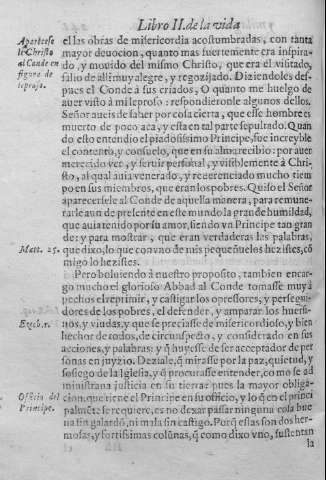 Libro II. de la vida
Aparecese
le Christo
al Conde en
figura de
leproso.
ellas obras de misericordia acostumbradas, con tanta
mayor deuocion, quanto mas fuertemente era inspira-
do, y mouido del mismo Christo, que era el visitado,
salio de alli muy alegre, y regozijado. Diziendoles des-
pues el Conde à sus criados, O quanto me huelgo de
auer visto à mi leproso: respondieronle algunos dellos.
Señor aueis de saber por cosa cierta, que esse hombre es
muerto de poco aca, y esta en tal parte sepultado. Quan
do esto entendio el piadosissimo Principe, fue increyble
el contento, y consuelo, que en su alma recibio: por auer
merecido ver, y seruir personal, y visiblemente à Chri-
sto, al qual auia venerado, y reuerenciado mucho tiem
po en sus miembros, que eran los pobres. Quiso el Señor
aparecersele al Conde de aquella manera, para remune-
rarle aun de presente en este mundo la grande humildad,
que auia tenido por su amor, siendo vn Principe tan gran
de: y para mostrar, que eran verdaderas las palabras,
Matt. 25.
que dixo, lo que con vno de mis pequeñuelos hezistes, cō
migo lo hezistes.
Pero boluiendo à nuestro proposito, tambien encar-
go mucho el glorioso Abbad al Conde tomasse muy à
pechos el reprimir, y castigar los opressores, y persegui-
dores de los pobres, el defender, y amparar los huerfa-
Ezech. 1.
nos, y viudas, y que se preciasse de misericordioso, y bien
hechor de todos, de circunspecto, y considerado en sus
acciones, y palabras: y q̃ huyesse de ser acceptador de per
sonas en juyzio. Deziale, q̃ mirasse por la paz, quietud, y
sossiego de la Iglesia, y q̃ procurasse entender, como se ad
ministraua justicia en su tierra: pues la mayor obliga-
Officio del
Principe.
cion, que tiene el Principe en su officio, y lo q̃ en el princi
palmēte se requiere, es no dexar passar ninguna cosa bue
na sin galardō, ni mala sin castigo. Porq̃ estas son dos her-
mosas, y fortissimas colūnas, q̃ como dixo vno, sustentan
la